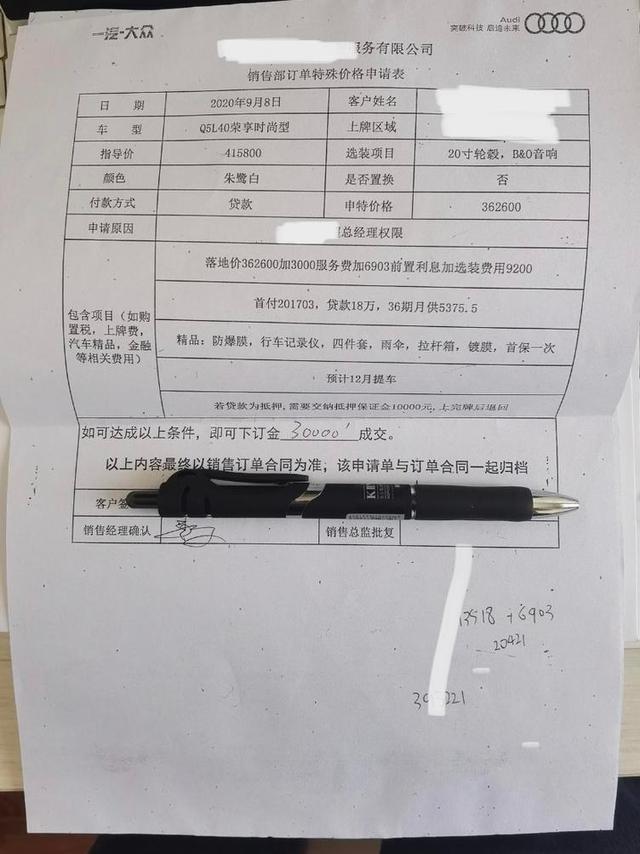 一汽-大众
Audi
突破科技 启迪未来
服务有限公司
销售部订单特殊价格申请表
日 期 2020年9月8日 客户姓名
车 型 Q5L40荣享时尚型 上牌区域
指导价 415800 选装项目 20寸轮毂，B&O音响
颜色 朱鹭白 是否置换 否
付款方式 贷款 申特价格 362600
申请原因 总经理权限
包含项目（如购置税，上牌费，汽车精品，金融等相关费用）
落地价362600加3000服务费加6903前置利息加选装费用9200
首付201703，贷款18万，36期月供5375.5
精品：防爆膜，行车记录仪，四件套，雨伞，拉杆箱，镀膜，首保一次
预计12月提车
若贷款为抵押，需要交纳抵押保证金10000元，上完牌后退回
如可达成以上条件，即可下订金 30000 成交。
以上内容最终以销售订单合同为准；该申请单与订单合同一起归档
客户签
销售经理确认 销售总监批复
13518 +6903
20421